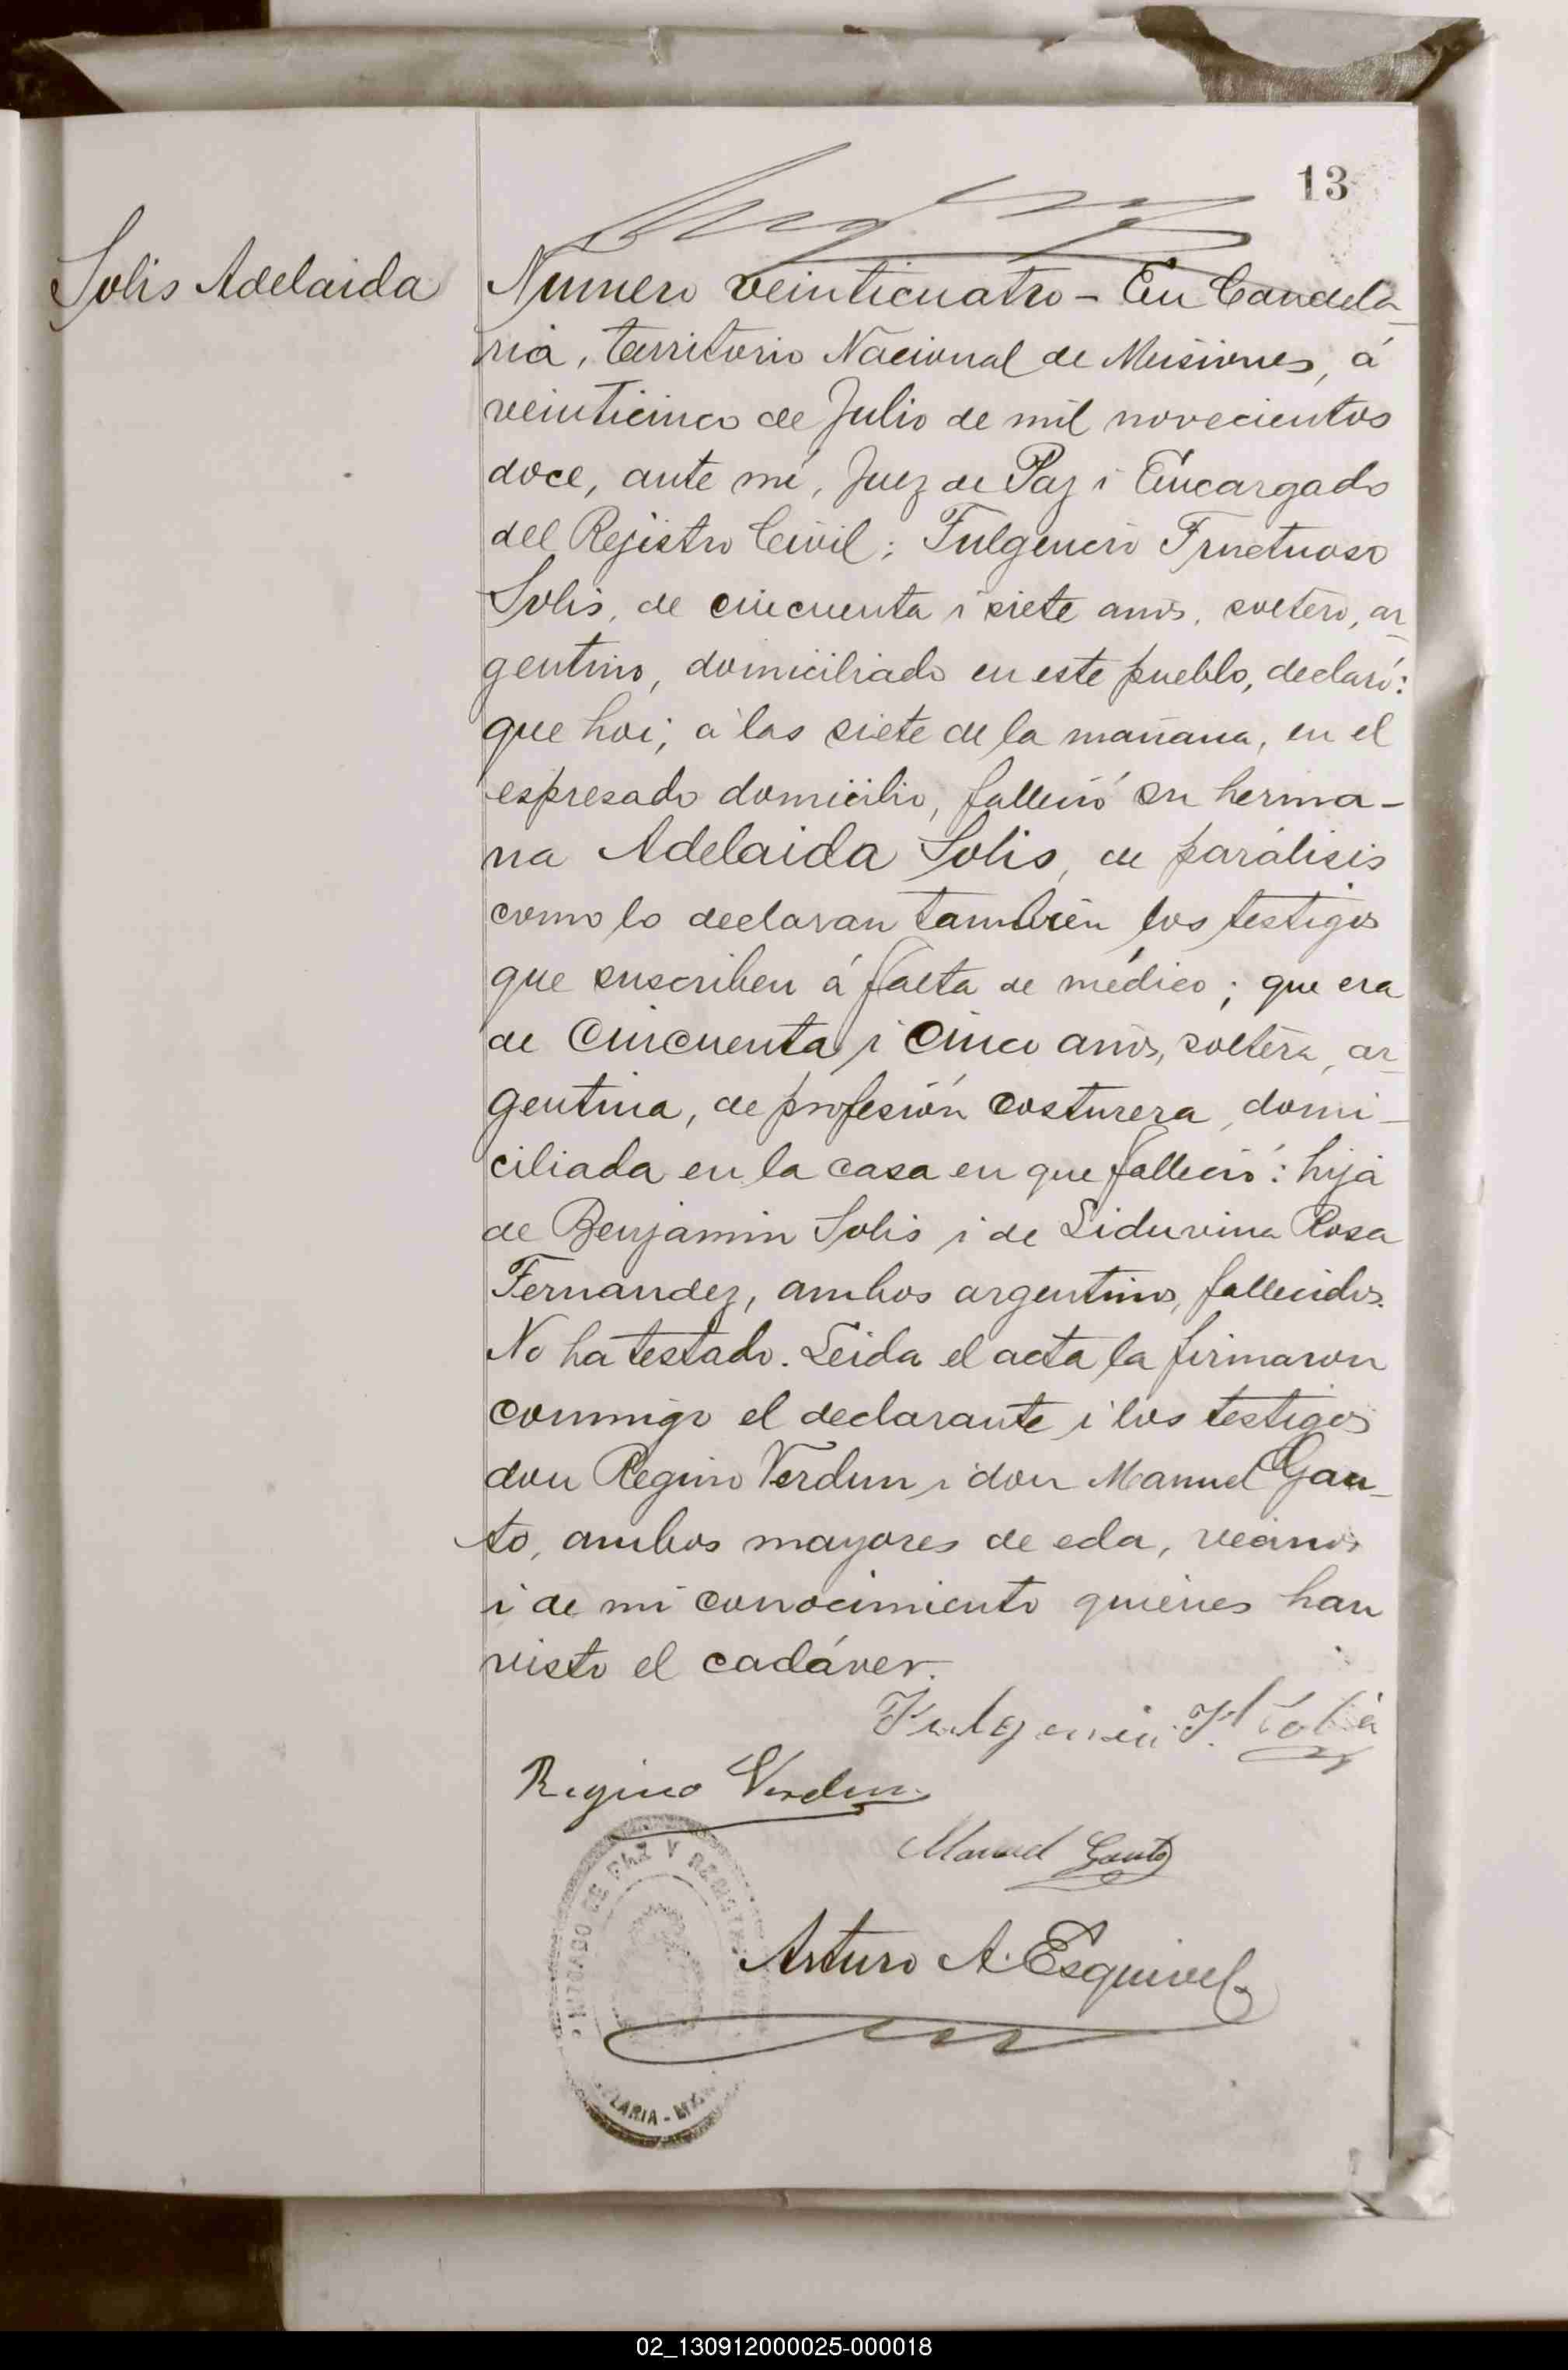 13
Solis Adelaida
Numero veinticuatro - En Candela-
ria, territorio Nacional de Misiones, á
veinticinco de Julio de mil novecientos
doce, ante mí, Juez de Paz i Encargado
del Rejistro Civil; Fulgencio Fructuoso
Solis, de cincuenta i siete anõs, soltero, ar-
gentino, domiciliado en este pueblo, declaró:
que hoi, á las siete de la mañana, en el
espresado domicilio, falleció su herma-
na Adelaida Solis, de parálisis
como lo declaran también los testigos
que suscriben á falta de médico; que era
de cincuenta i cinco anõs, soltera, ar-
gentina, de profesión costurera, domi-
ciliada en la casa en que falleció: hija
de Benjamin Solis i de Liduvina Rosa
Fernandez, ambos argentinos, fallecidos.
No ha testado. Leida el acta la firmaron
conmigo el declarante i los testigos
don Regino Verdun i don Manuel Gau-
to, ambos mayores de eda, vecinos
i de mi conocimiento quiénes han
visto el cadáver.
Fulgencio F. Solis
Regino Verdun
Manuel Gauto
JUZGADO DE PAZ Y
Arturo A. Esquivel
02_130912000025-000018